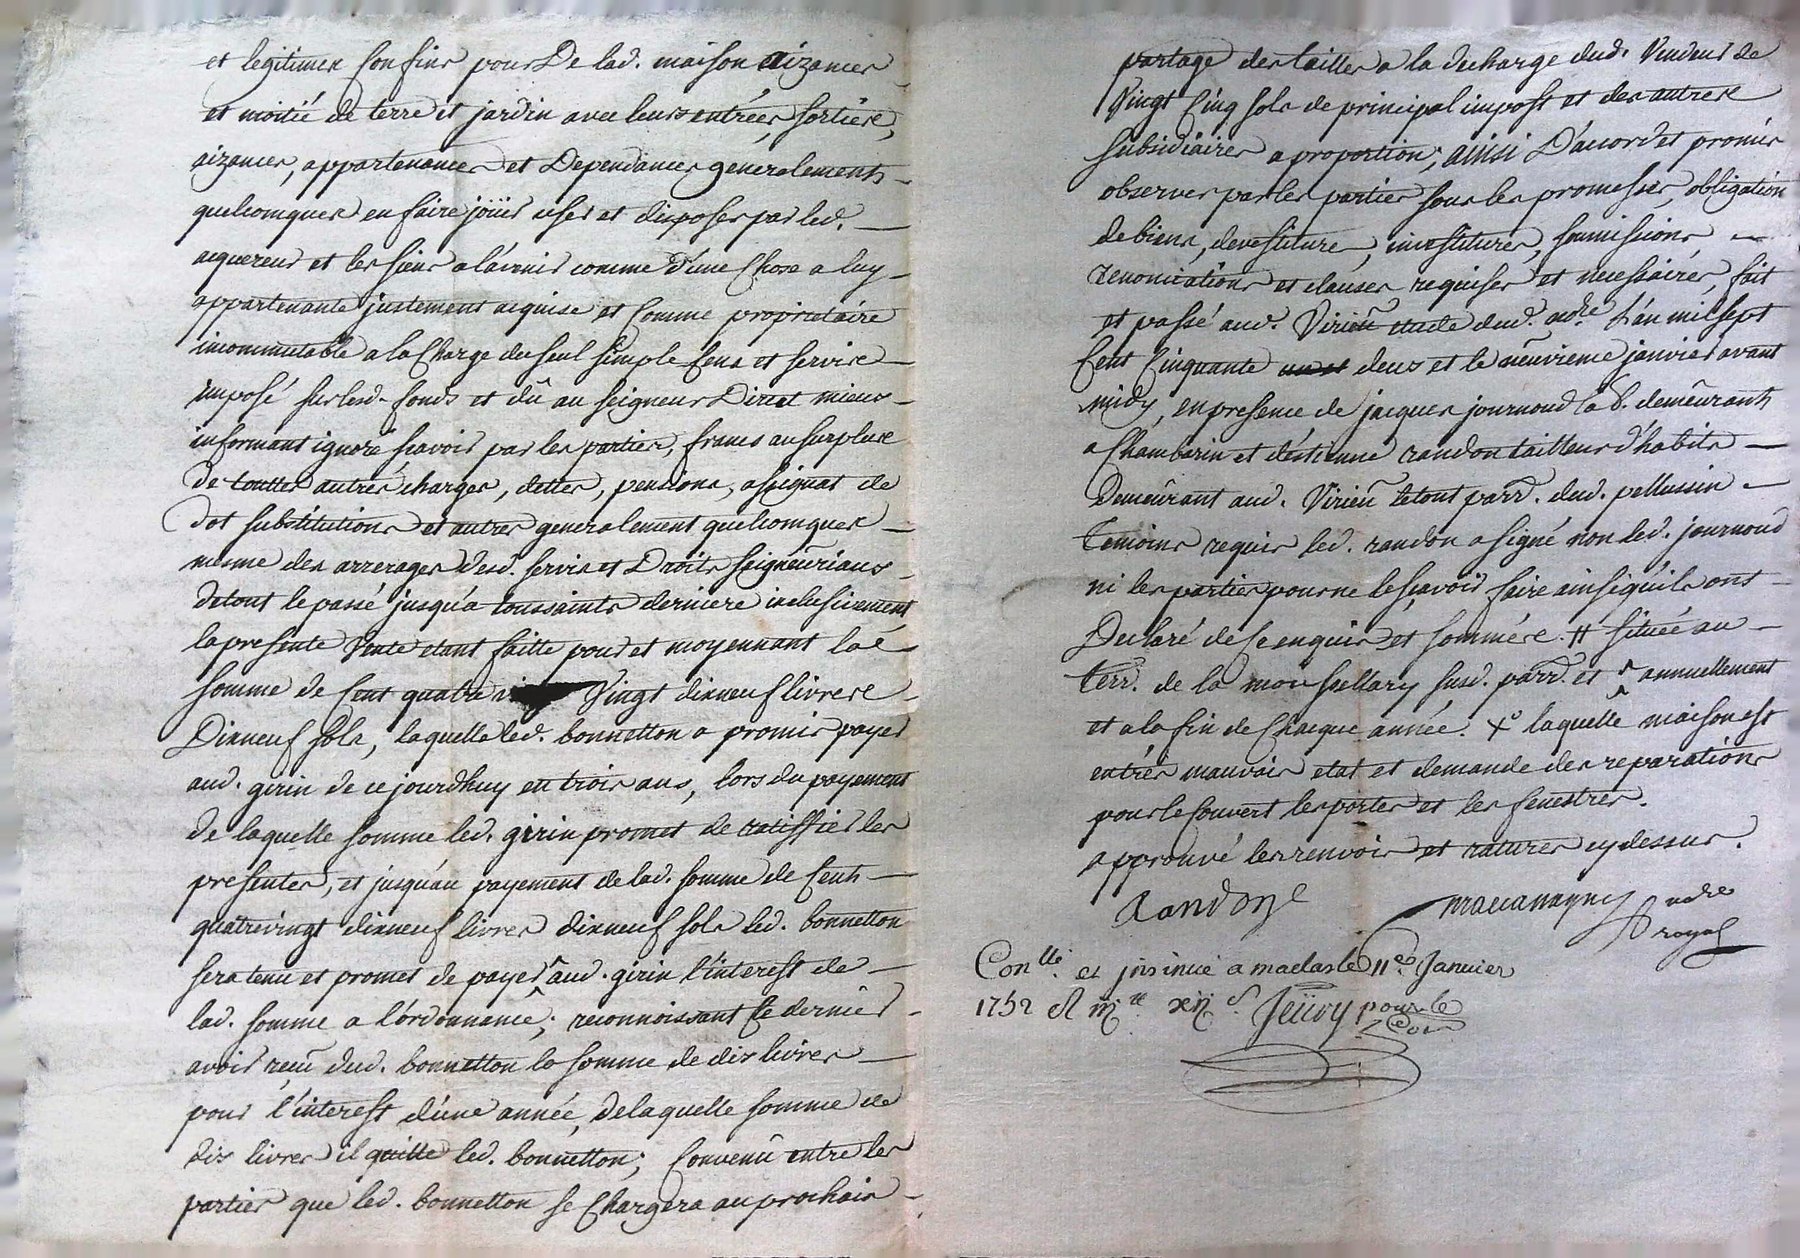 et legitimes confins pour De lad. maison aizances
et moitié de terre et jardin avec leurs entrées, sorties,
aizances, appartenances et Dependances generalements
quelcomques en faire joüir user et disposer par led.
acquereur et les siens a l'avenir comme d'une Chose a luy
appartenante justement acquise et Comme proprietaire
incommutable a la Charge du seul simple Cens et servise
imposé sur lesd. fonds et dû au seigneur Direct mieux
informant ignoré sçavoir par les parties, francs au surplus
de touttes autrés charges, dettes, pensions, assignat de
dot substitutions et autres generalement quelcomques
mesme des arrerages desd. servis et Droits seigneuriaux
de tout le passé jusqu'a toussaints derniere inclusivement
la presente Vente etant faitte pour et moyennant la
somme de Cent quatre vingt dixneuf livres
Dixneuf sols, laquelle led. bonnetton a promis payer
aud. girin de ce jourdhuy en trois ans, lors du payement
de laquelle somme led. girin promet de ratiffier les
presentes, et jusqu'au payement de lad. somme de Cent
quatrevingt dixneuf livres dixneuf sols led. bonnetton
sera tenu et promet de payer ^ aud. girin l'interest de
lad. somme a l'ordonnance; reconnoissant Ce dernier
avoir reçu dud. bonnetton la somme de dix livres
pour l'interest d'une année, de laquelle somme de
dix livres il quitte led. bonnetton; Convenu entre les
parties que led. bonnetton se Chargera au prochain
partage des tailles a la decharge dud. Vendeur de
Vingt Cinq sols de principal impost et des autres
subsidiaires a proportion; ainsi D'acord et promis
observer par les parties sous les promesses, obligation
de biens, devestiture, investitures, soumissions
renonciations et clauses requises et necessaires, fait
et passé aud. Virieu etude dud. ndre L'an mil sept
Cent Cinquante deux et le neuvieme janvier avant
midy, en presence de jacques journoud la d. demeurant
a Chambarin et d'estienne randon tailleur d'habits
Demeurant aud. Virieu le tout parr. dud. pellussin
Temoins requis led. randon a signé non led. journoud
ni les parties pour ne le sçavoir faire ainsi qu'ils ont
Declaré de ce enquis et sommés. # située au
terr. de la mou sellary susd. parr. et ^ annuellement
et a la fin de Chacque année. X laquelle maison est
en tres mauvais etat et demande des reparations
pour le Couvert les portes et les fenestres.
approuvé les renvois et ratures cy dessus.
Randon
ndre
royal
Conllé. et insinué a maclas le 11e Janvier
1752 R
pour le